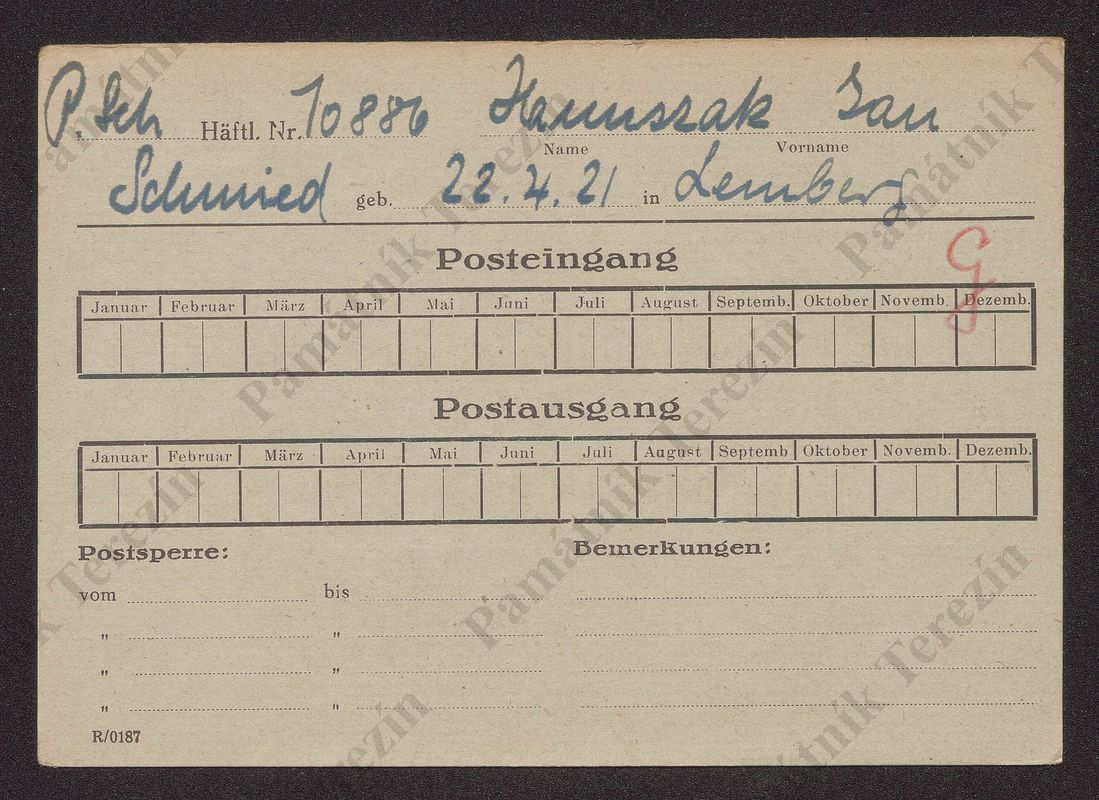 P. Sch Häftl. Nr. 70886 Hannszak Jan
Name Vorname
Schmied geb. 22.4.21 in Lemberg
Posteingang
G
Januar Februar März April Mai Juni Juli August Septemb. Oktober Novemb. Dezemb.
Postausgang
Januar Februar März April Mai Juni Juli August Septemb Oktober Novemb. Dezemb.
Postsperre: Bemerkungen:
vom bis
" "
" "
" "
R/0187
Památník Terezín